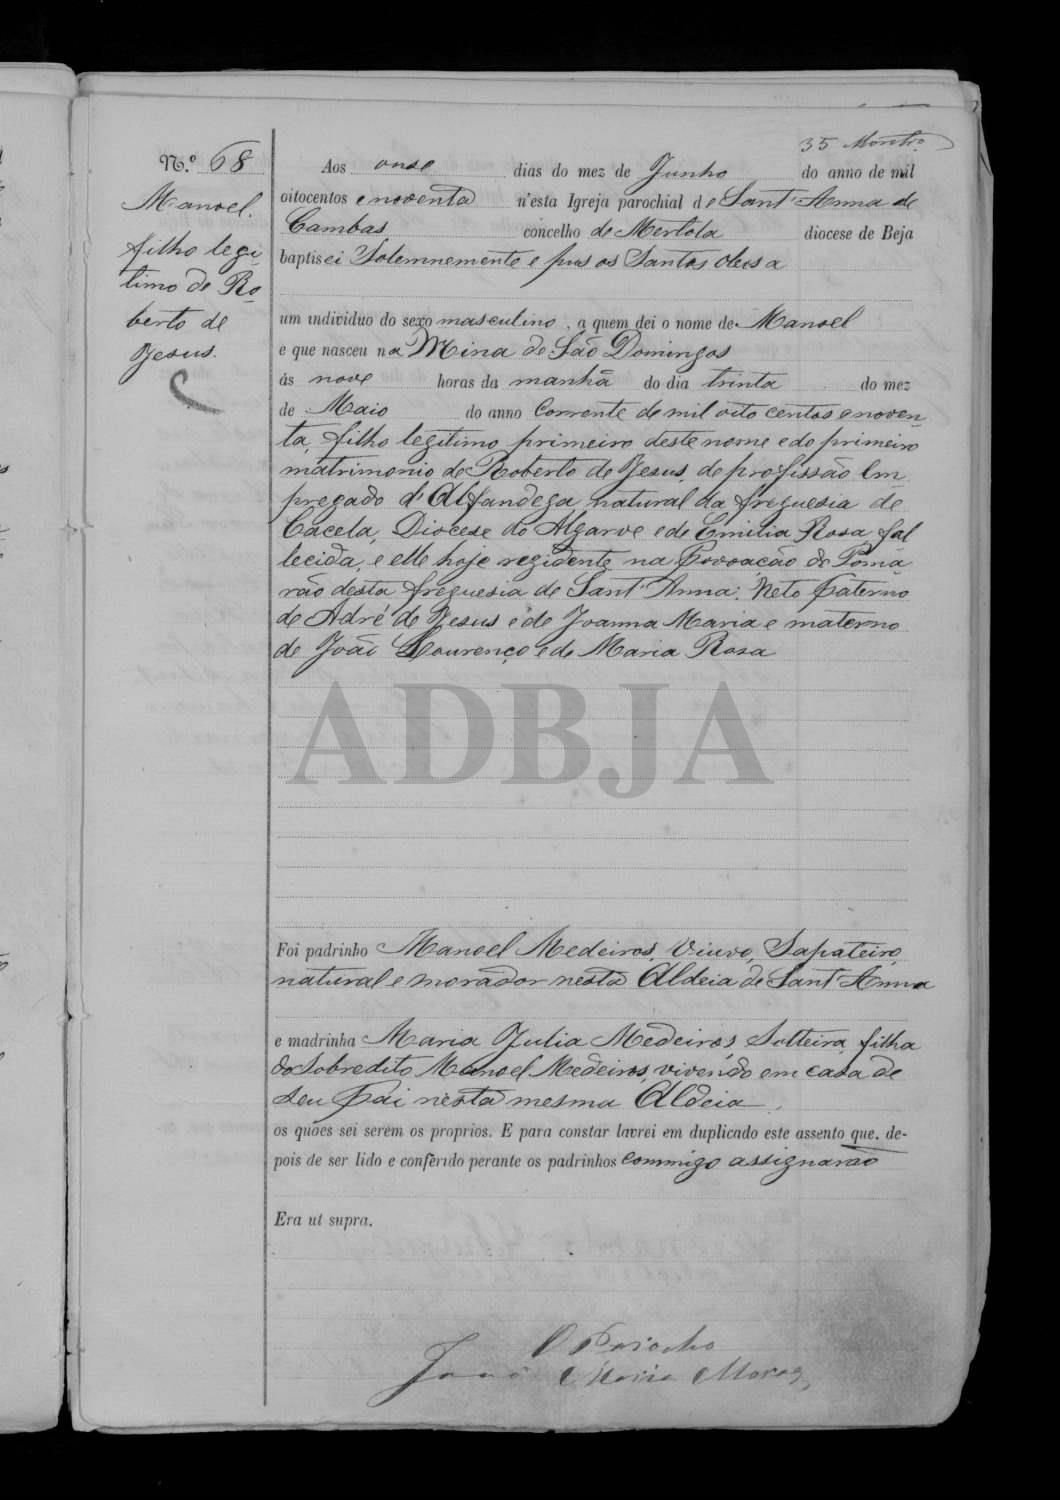 35 Montr.
N.º 68
Manoel.
filho legi-
timo de Ro-
berto de
Jesus.
Aos onse dias do mez de Junho do anno de mil
oitocentos e noventa n'esta Igreja parochial de Sant'Anna de
Cambas concelho de Mertola diocese de Beja
baptisei Solemnemente e pus os Santos oleos a
um individuo do sexo masculino, a quem dei o nome de Manoel
e que nasceu na Mina de São Domingos
ás nove horas da manhã do dia trinta do mez
de Maio do anno Corrente de mil oito centos e noven-
ta, filho legitimo primeiro deste nome e do primeiro
matrimonio de Roberto de Jesus, de profissão Em
pregado d'Alfandega natural da freguesia de
Cacela, Diocese do Algarve e de Emilia Rosa, fal
lecida, e elle hoje regidente na Povoação do Poma
rão desta freguesia de Sant'Anna: Neto Paterno
de Adré de Jesus e de Joanna Maria e materno
de João Lourenço e de Maria Rosa
ADBJA
Foi padrinho Manoel Medeiros, Viuvo, Sapateiro,
natural e morador nesta Aldeia de Sant'Anna
e madrinha Maria Julia Medeiros, Solteira, filha
do Sobredito Manoel Medeiros, vivendo em casa de
seu Pai nesta mesma Aldeia.
os quaes sei serem os proprios. E para constar lavrei em duplicado este assento que, de-
pois de ser lido e conferido perante os padrinhos commigo assignarão
Era ut supra.
O Parocho
João Maria Moraes